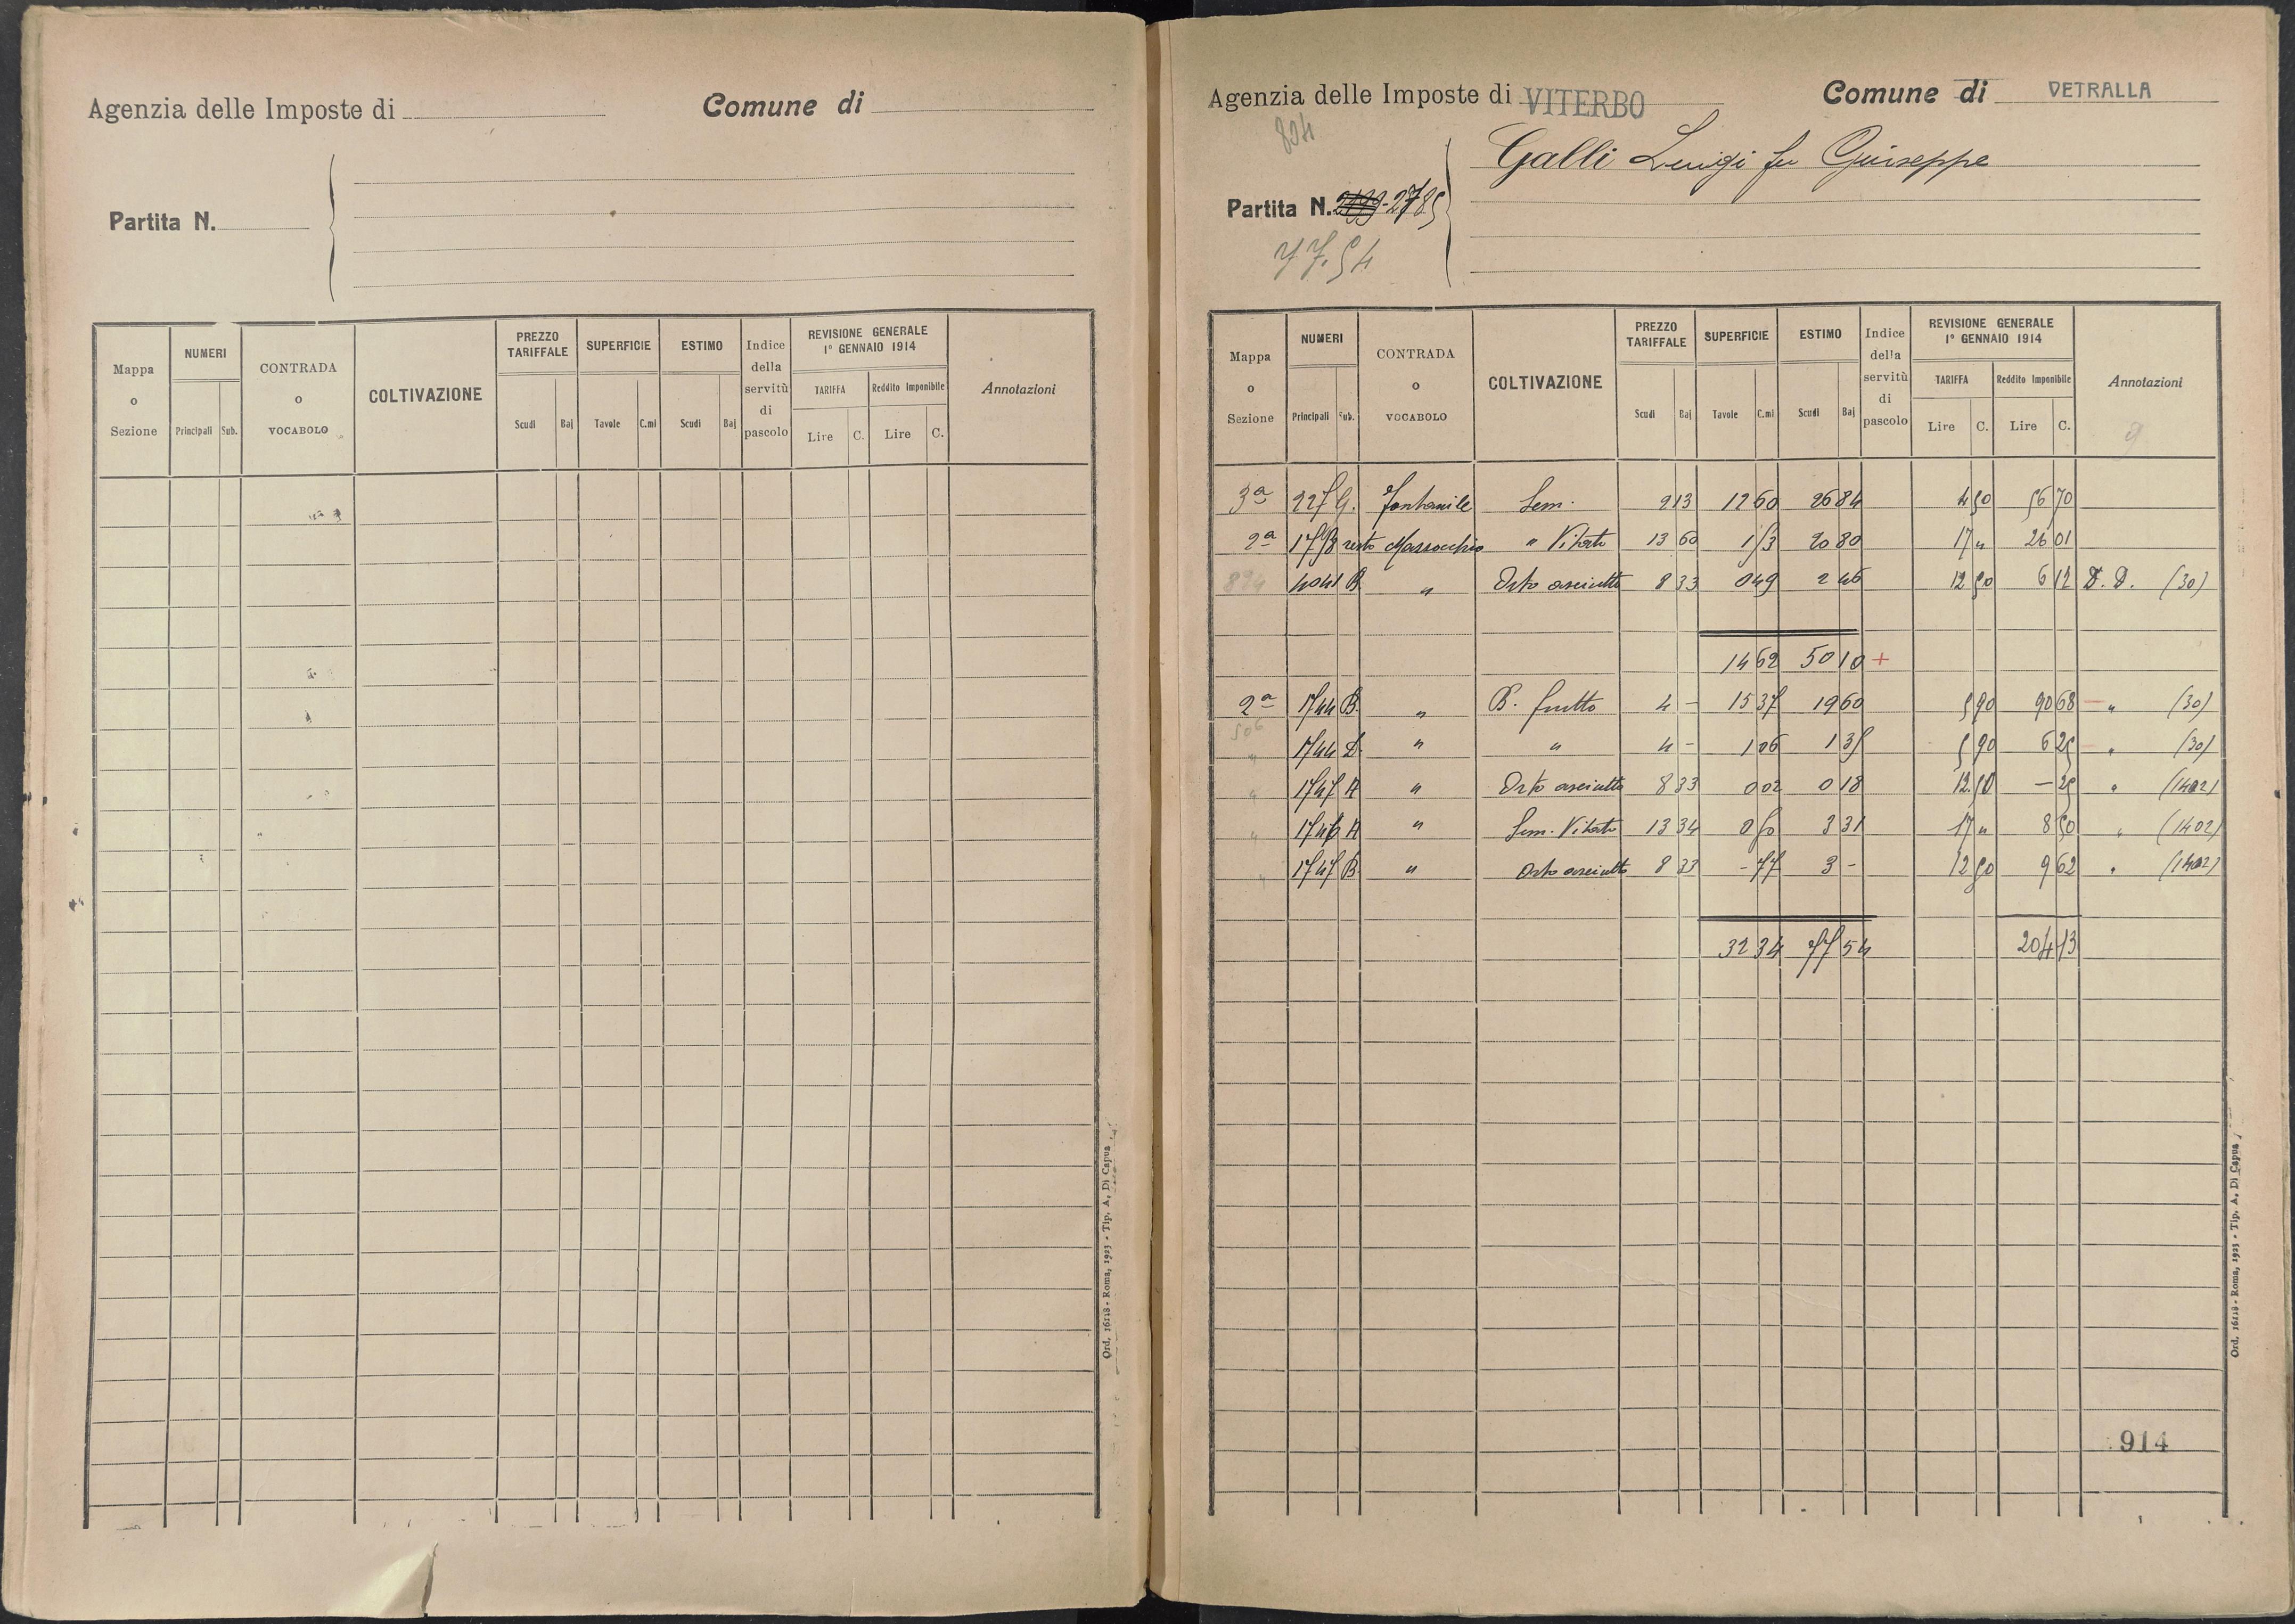 Agenzia delle Imposte di
Comune di
Partita N.
Mappa o Sezione
NUMERI
Principali Sub.
CONTRADA o VOCABOLO
COLTIVAZIONE
PREZZO TARIFFALE
Scudi Baj
SUPERFICIE
Tavole C.mi
ESTIMO
Scudi Baj
Indice della servitù di pascolo
REVISIONE GENERALE
1° GENNAIO 1914
TARIFFA
Lire C.
Reddito Imponibile
Lire C.
Annotazioni
Ord. 16118 - Roma, 1923 - Tip. A. Di Capua
Agenzia delle Imposte di VITERBO
Comune di VETRALLA
804
Galli Luigi fu Giuseppe
Partita N. 2785
77.54
Mappa o Sezione
NUMERI
Principali Sub.
CONTRADA o VOCABOLO
COLTIVAZIONE
PREZZO TARIFFALE
Scudi Baj
SUPERFICIE
Tavole C.mi
ESTIMO
Scudi Baj
Indice della servitù di pascolo
REVISIONE GENERALE
1° GENNAIO 1914
TARIFFA
Lire C.
Reddito Imponibile
Lire C.
Annotazioni
3ª 227 G. Fontanile Sem. 2 13 12 60 26 84 4 50 56 70
2ª 1758 resto Massocchio " Vitato 13 60 1 53 20 80 17 " 26 01
4041 B. " Orto asciutto 8 33 0 49 2 46 12 50 6 12 D. D. (30)
14 62 50 10 +
2ª 1744 B. " B. frutto 4 - 15 37 19 60 5 90 90 68 " (30)
506
" 1744 D " " 4 - 1 06 1 35 5 90 6 25 " (30)
" 1747 A " Orto asciutto 8 33 0 02 0 18 12 50 - 25 " (1402)
" 1746 A " Sem. Vitato 13 34 0 50 3 31 17 " 8 50 " (1402)
" 1747 B " Orto asciutto 8 33 - 77 3 - 12 50 9 62 " (1402)
32 34 77 54 204 13
914
Ord. 16118 - Roma, 1923 - Tip. A. Di Capua